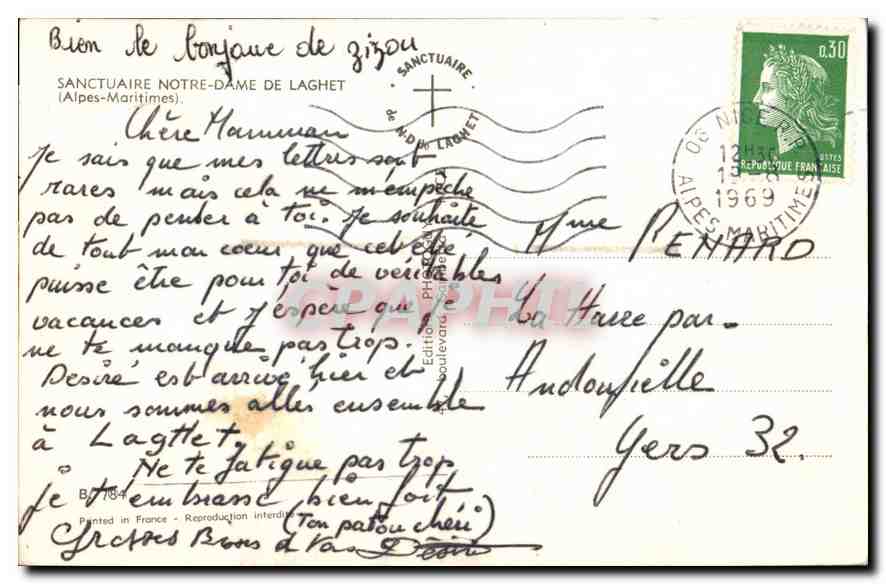 Bien le bonjour de zizou
SANCTUAIRE NOTRE-DAME DE LAGHET
(Alpes-Maritimes).
Chère Mamman
Je sais que mes lettres sont
rares mais cela ne m'empêche
pas de penser à toi. Je souhaite
de tout mon coeur que cet été
puisse être pour toi de véritables
vacances et j'espère que je
ne te manque pas trop.
Desiré est arrivé hier et
nous sommes allés ensemble
à Lagttet.
Ne te fatigue pas trop
je t'embrasse bien fort
(Ton patou chéri)
Grosses Bises
Désiré
B. 7184
Printed in France - Reproduction interdite
Editions PHOTOGUY
boulevard
SANCTUAIRE
de N.D. de LAGHET
06 NICE R.P.
12H
1969
ALPES-MARITIMES
0.30
POSTES
REPUBLIQUE FRANCAISE
Mme RENARD
La Harre par-
Andoufielle
Gers 32.
CPAPHIL